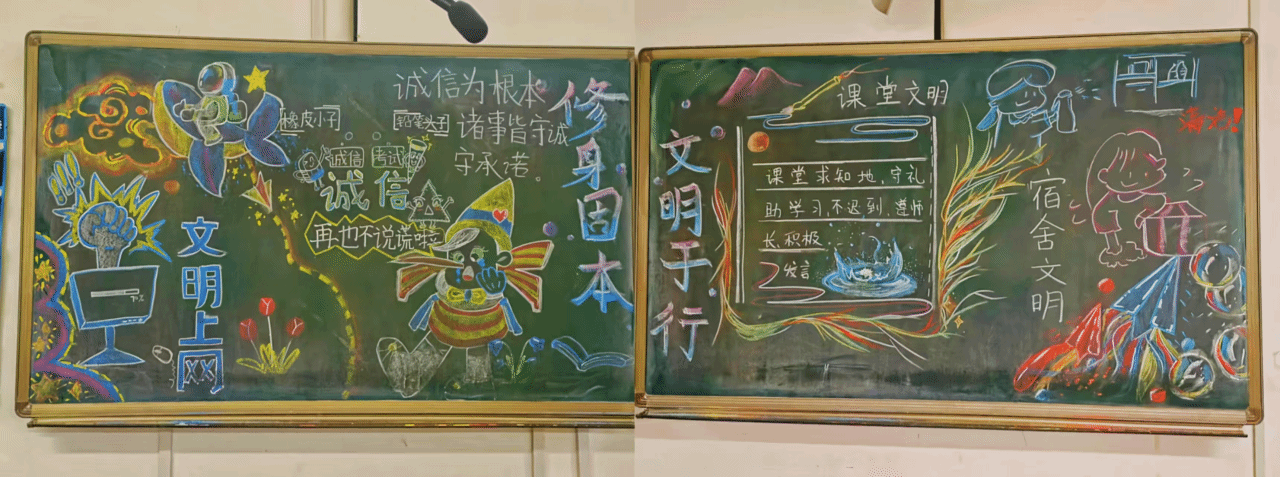 诚信为根本
诸事皆守诚
守承诺。
修身固本
橡皮小子
铅笔头子
诚信
考试
诚信
再也不说谎啦
文明上网
文明于行
课堂文明
课堂求知地,守礼
助学习,不迟到,尊师
长,积极
发言
宿舍文明